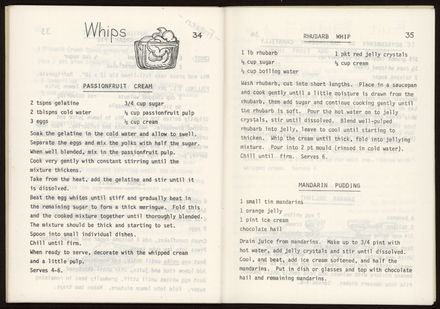 Whips
34
PASSIONFRUIT CREAM
2 tspns gelatine 3/4 cup sugar
2 tblspns cold water ½ cup passionfruit pulp
3 eggs ½ cup cream
Soak the gelatine in the cold water and allow to swell.
Separate the eggs and mix the yolks with half the sugar.
When well blended, mix in the passionfruit pulp.
Cook very gently with constant stirring until the
mixture thickens.
Take from the heat, add the gelatine and stir until it
is dissolved.
Beat the egg whites until stiff and gradually beat in
the remaining sugar to form a thick meringue. Fold this
and the cooked mixture together until thoroughly blended.
The mixture should be thick and starting to set.
Spoon into small individual dishes.
Chill until firm.
When ready to serve, decorate with the whipped cream
and a little pulp.
Serves 4-6.
RHUBARB WHIP
35
1 lb rhubarb 1 pkt red jelly crystals
cup sugar cup cream
cup boiling water
Wash rhubarb, cut into short lengths. Place in a saucepan
and cook gently until a little moisture is drawn from the
rhubarb, then add sugar and continue cooking gently until
the rhubarb is soft. Pour the hot water on to jelly
crystals, stir until dissolved. Blend well-pulped
rhubarb into jelly, leave to cool until starting to
thicken. Whip the cream until thick, fold into jellying
mixture. Pour into 2 pint mould (rinsed in cold water).
Chill until firm. Serves 6.
MANDARIN PUDDING
1 small tin mandarins
1 orange jelly
1 pint ice cream
chocolate hail
Drain juice from mandarins. Make up to 3/4 pint with
hot water, add jelly crystals and stir until dissolved.
Cool, and beat, add ice cream softened, and half the
mandarins. Put in dish or glasses and top with chocolate
hail and remaining mandarins.